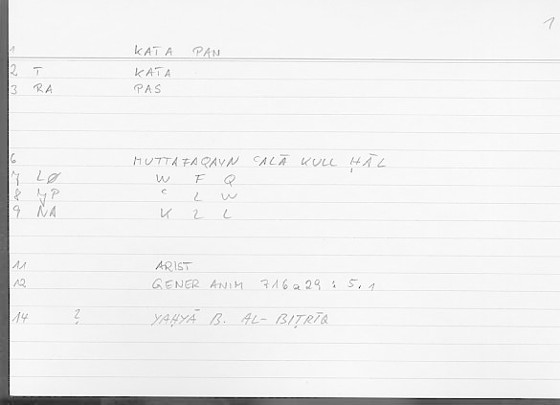 1
1 KATA PAN
2 T KATA
3 RA PAS
6 MUTTAFAQAYN ʿALĀ KULL ḤĀL
7 LØ W F Q
8 JP ʿ L W
9 NA K L L
11 ARIST
12 GENER ANIM 716a29 : 5.1
14 ? YAḤYĀ B. AL-BIṬRĪQ